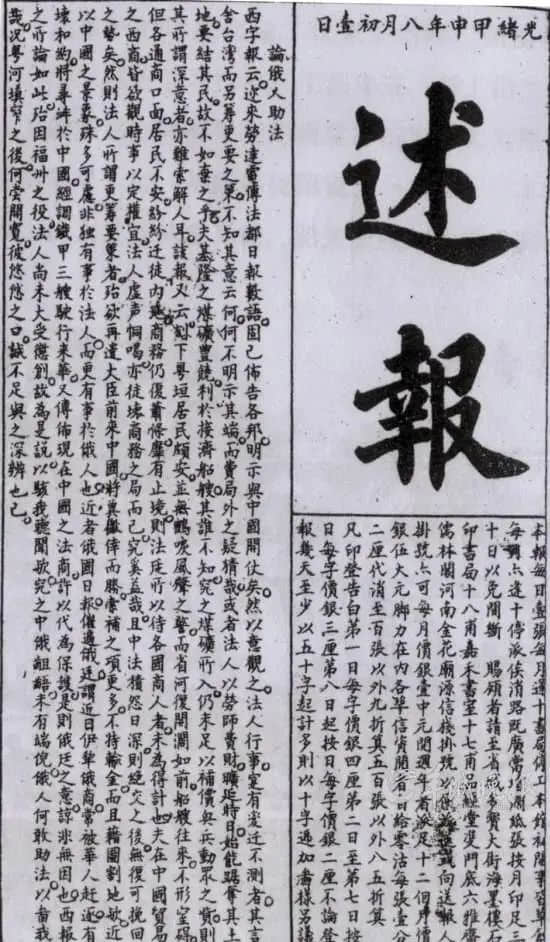 光緒甲申年八月初壹日
述報
本報每日壹張每月逢十書局停工本館
每期亦逢十停派俟消路既廣當增潤紙張按月印足三
十日以免間斷 賜顧者請至省城多寶大街海墨樓石
印書局十八甫嘉禾書室十七甫品經堂雙門底六雅齋
儒林閣河南金花廟源信棧掛號以便派送或向送報人
掛號亦可每月價銀壹中元閏週年者派足十二個月價
銀伍大元腳力在內各埠信資開者日給零沽每張壹分
二厘代消至百張以外九折算五百張以外八五折算
凡印登告白第一日每字價銀四厘第二日至第七日按
日每字價銀三厘第八日起按日每字價銀二厘不論登
報幾天至少以五十字起計多則以十字遞加書樣另議
論俄人助法
西字報云近來勞連當傳法都日報數語固已佈告各邦明示與中國開仗矣然以意觀之法人行事寔有密近不測者其言
舍台灣而另籌更要之策不知其意云何何不明示其端而費局外之疑猜哉或者法人以勞師費財曠延時日始能踞奪其土
地要結其民故不如棄之乎夫基隆之煤礦豐饒利於接濟船艘其誰不知究之煤礦所入仍未足以補償興兵動眾之貲則
其所謂深意者亦難索解人耳該報又云刻下粵垣居民頗安並無鶴唳風聲之警而省河復開濶如前船艘往來不形窒碍
但各通商口面居民不安紛紛迁徙內地商務仍復蕭條靡有止境則法廷所以待各國商人者未為得計也夫在中國貿易
之西商皆欲觀時事以定權宜法人虛声恫喝亦徒壞商務之局而已究奚益哉且中法積怨日深則絕交之後無復可挽回
之勢矣然則法人所謂更籌要策者殆欲再遣大臣前來中國將冀儌倖而勝需補之項更多不持輸金而且藉圖割地歟近
以中國之景象殊多可慮非獨有事於法人而更有事於俄人也近者俄國日報催過俄廷謂近日伊犂俄商常被華人赶逐有
壞和約將尋衅於中國經調鉄甲三艘駛行來華又傳佈現在中國之法商許以代為保護是則俄廷之意諒非無因也西報
之所論如此殆因福州之役法人尚未大受懲創故為是說以駭我聽聞歟究之中俄齟齬未有端倪俄人何敢助法以啻我
哉况粵河填窄之後何嘗開寬彼悠悠之口誠不足與之深辨也已